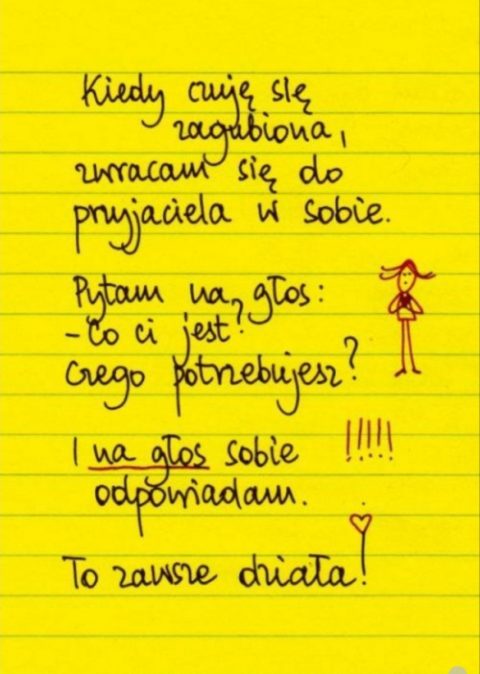 Kiedy czuję się
zagubiona,
zwracam się do
przyjaciela w sobie.
Pytam na głos:
- Co ci jest?
Czego potrzebujesz?
I na głos sobie
!!!!!
odpowiadam.
To zawsze działa!